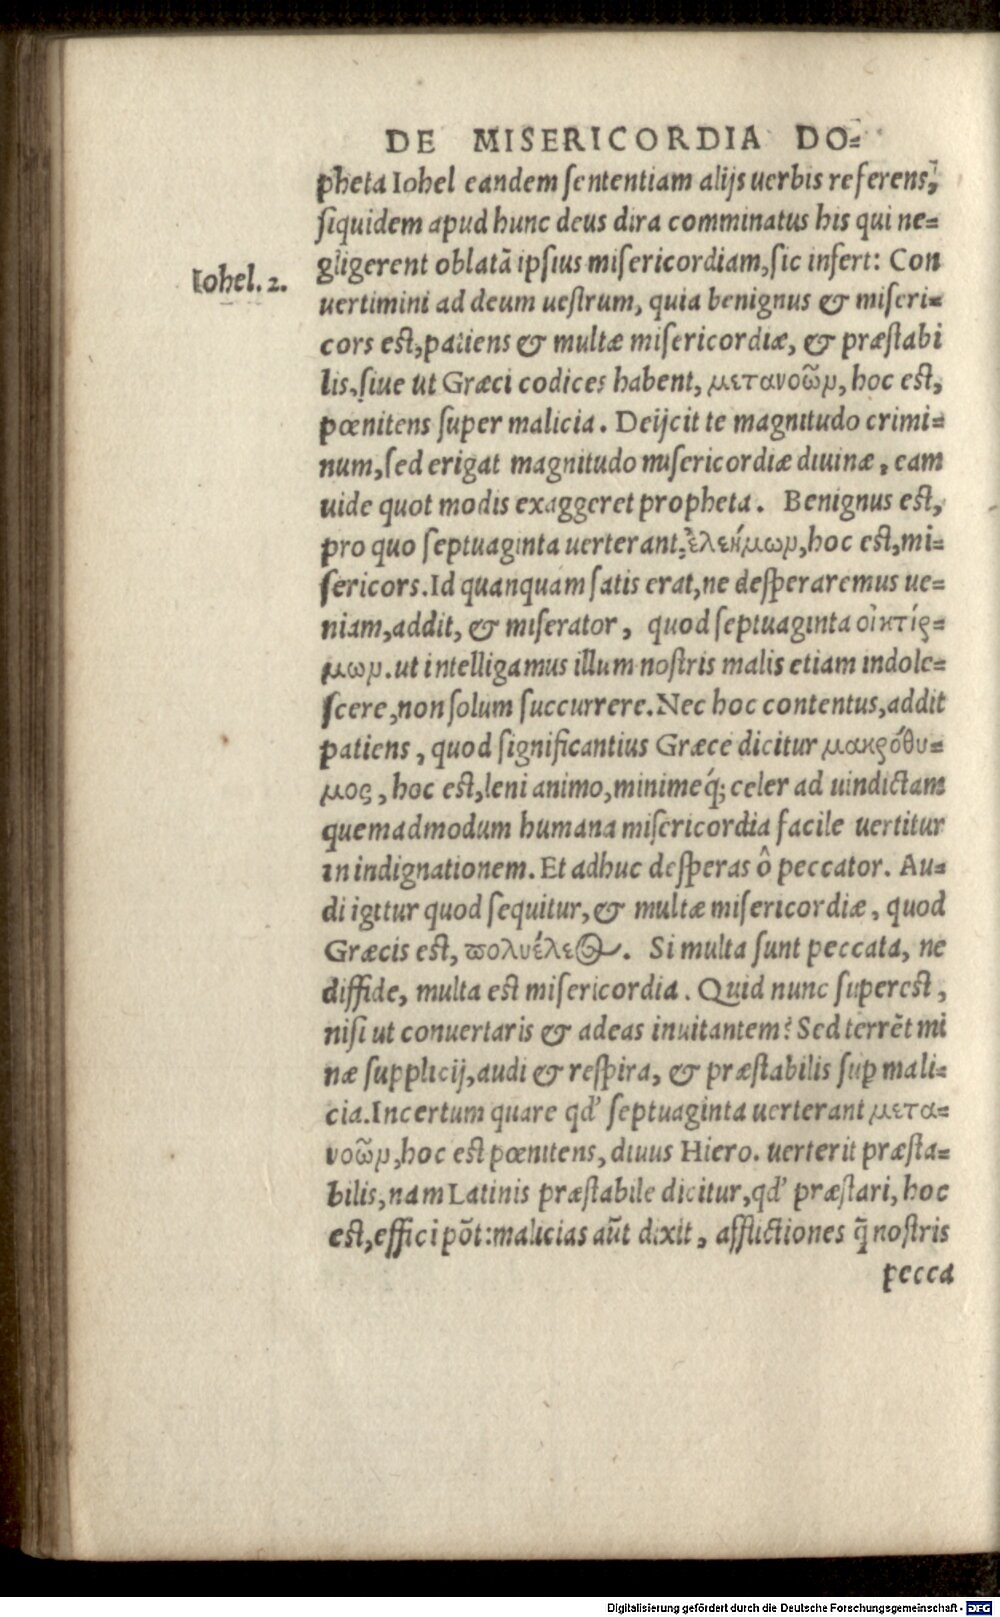 DE MISERICORDIA DO-
pheta Iohel eandem sententiam alijs uerbis referens,
siquidem apud hunc deus dira comminatus his qui ne-
gligerent oblatã ipsius misericordiam, sic infert: Con
Iohel. 2.
uertimini ad deum uestrum, quia benignus & miseri-
cors est, patiens & multæ misericordiæ, & præstabi
lis, siue ut Græci codices habent, μετανοῶν, hoc est,
pœnitens super malicia. Deijcit te magnitudo crimi-
num, sed erigat magnitudo misericordiæ diuinæ, eam
uide quot modis exaggeret propheta. Benignus est,
pro quo septuaginta uerterant, ἐλεήμων, hoc est, mi-
sericors. Id quanquam satis erat, ne desperaremus ue-
niam, addit, & miserator, quod septuaginta οἰκτίρ-
μων. ut intelligamus illum nostris malis etiam indole-
scere, non solum succurrere. Nec hoc contentus, addit
patiens, quod significantius Græce dicitur μακρόθυ-
μος, hoc est, leni animo, minimeq́; celer ad uindictam
quemadmodum humana misericordia facile uertitur
in indignationem. Et adhuc desperas ô peccator. Au-
di igitur quod sequitur, & multæ misericordiæ, quod
Græcis est, πολυέλεος. Si multa sunt peccata, ne
diffide, multa est misericordia. Quid nunc superest,
nisi ut conuertaris & adeas inuitantem? Sed terrẽt mi
næ supplicij, audi & respira, & præstabilis suꝑ mali-
cia. Incertum quare qđ septuaginta uerterant μετα-
νοῶν, hoc est pœnitens, diuus Hiero. uerterit præsta-
bilis, nam Latinis præstabile dicitur, qđ præstari, hoc
est, effici põt: malicias aũt dixit, afflictiones q̃ nostris
pecca
Digitalisierung gefördert durch die Deutsche Forschungsgemeinschaft - DFG